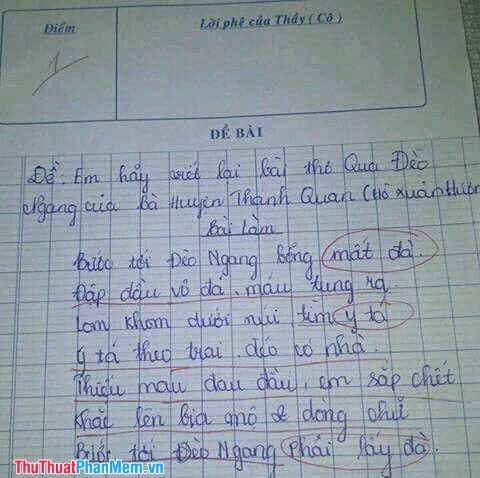 Điểm
Lời phê của Thầy ( Cô )
1
ĐỀ BÀI
Đề: Em hãy viết lại bài thơ Qua Đèo
Ngang của Bà Huyện Thanh Quan (Hồ Xuân Hươn
Bài làm
Bước tới Đèo Ngang bỗng mất đà.
Đập đầu vô đá, máu tung ra
Lom khom dưới núi, tìm y tá
Y tá theo trai, đéo có nhà.
Thiếu máu đau đầu, em sắp chết
Khắc lên bia mộ 2 dòng chữ
Bước tới Đèo Ngang phải lấy đà.
ThuThuatPhanMem.vn